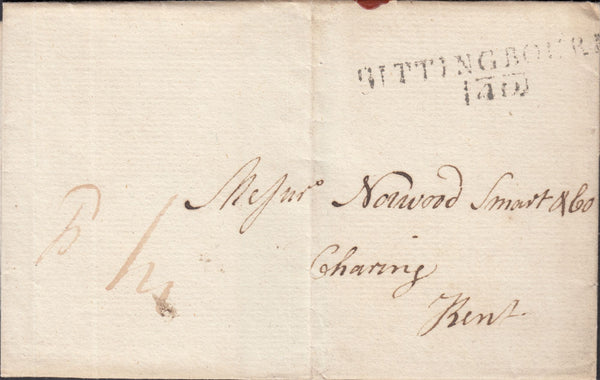 SITTINGBOUR
Messrs. Norwood Smart & Co
Charing
Kent.